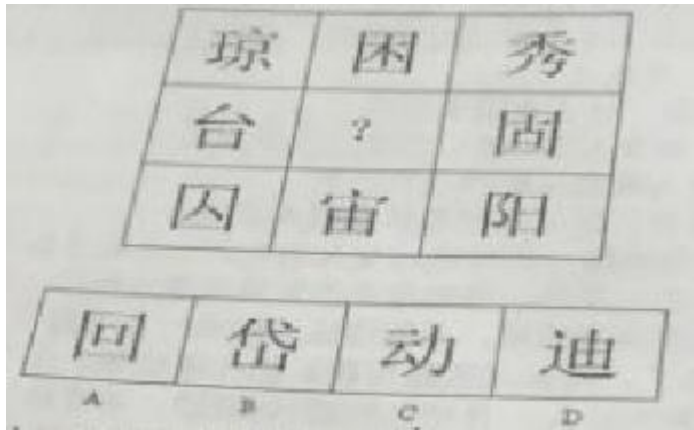 琼 困 秀
台 ? 固
囚 宙 阳
回 岱 动 迪
A B C D